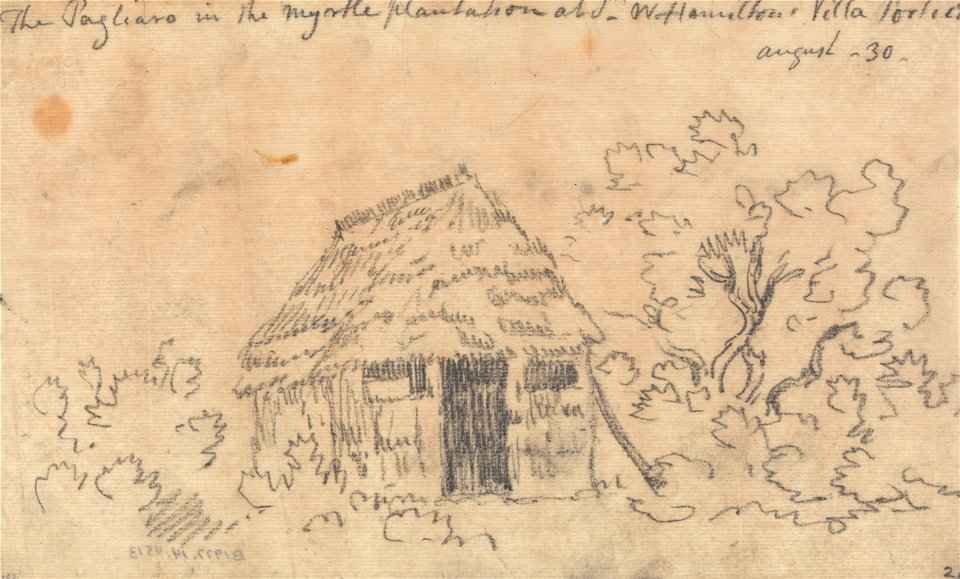 The Pagliaro in the myrtle plantation at Sr. W. Hamilton's Villa Portici
august - 30 -
B1977.14.4513
2